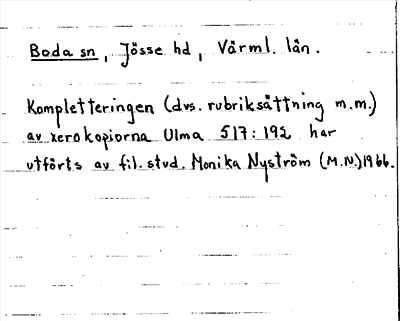 Boda sn, Jösse hd, Värml. län.
Kompletteringen (dvs. rubriksättning m.m.)
av xerokopiorna Ulma 517:192 har
utförts av fil. stud. Monika Nyström (M.N.) 1966.